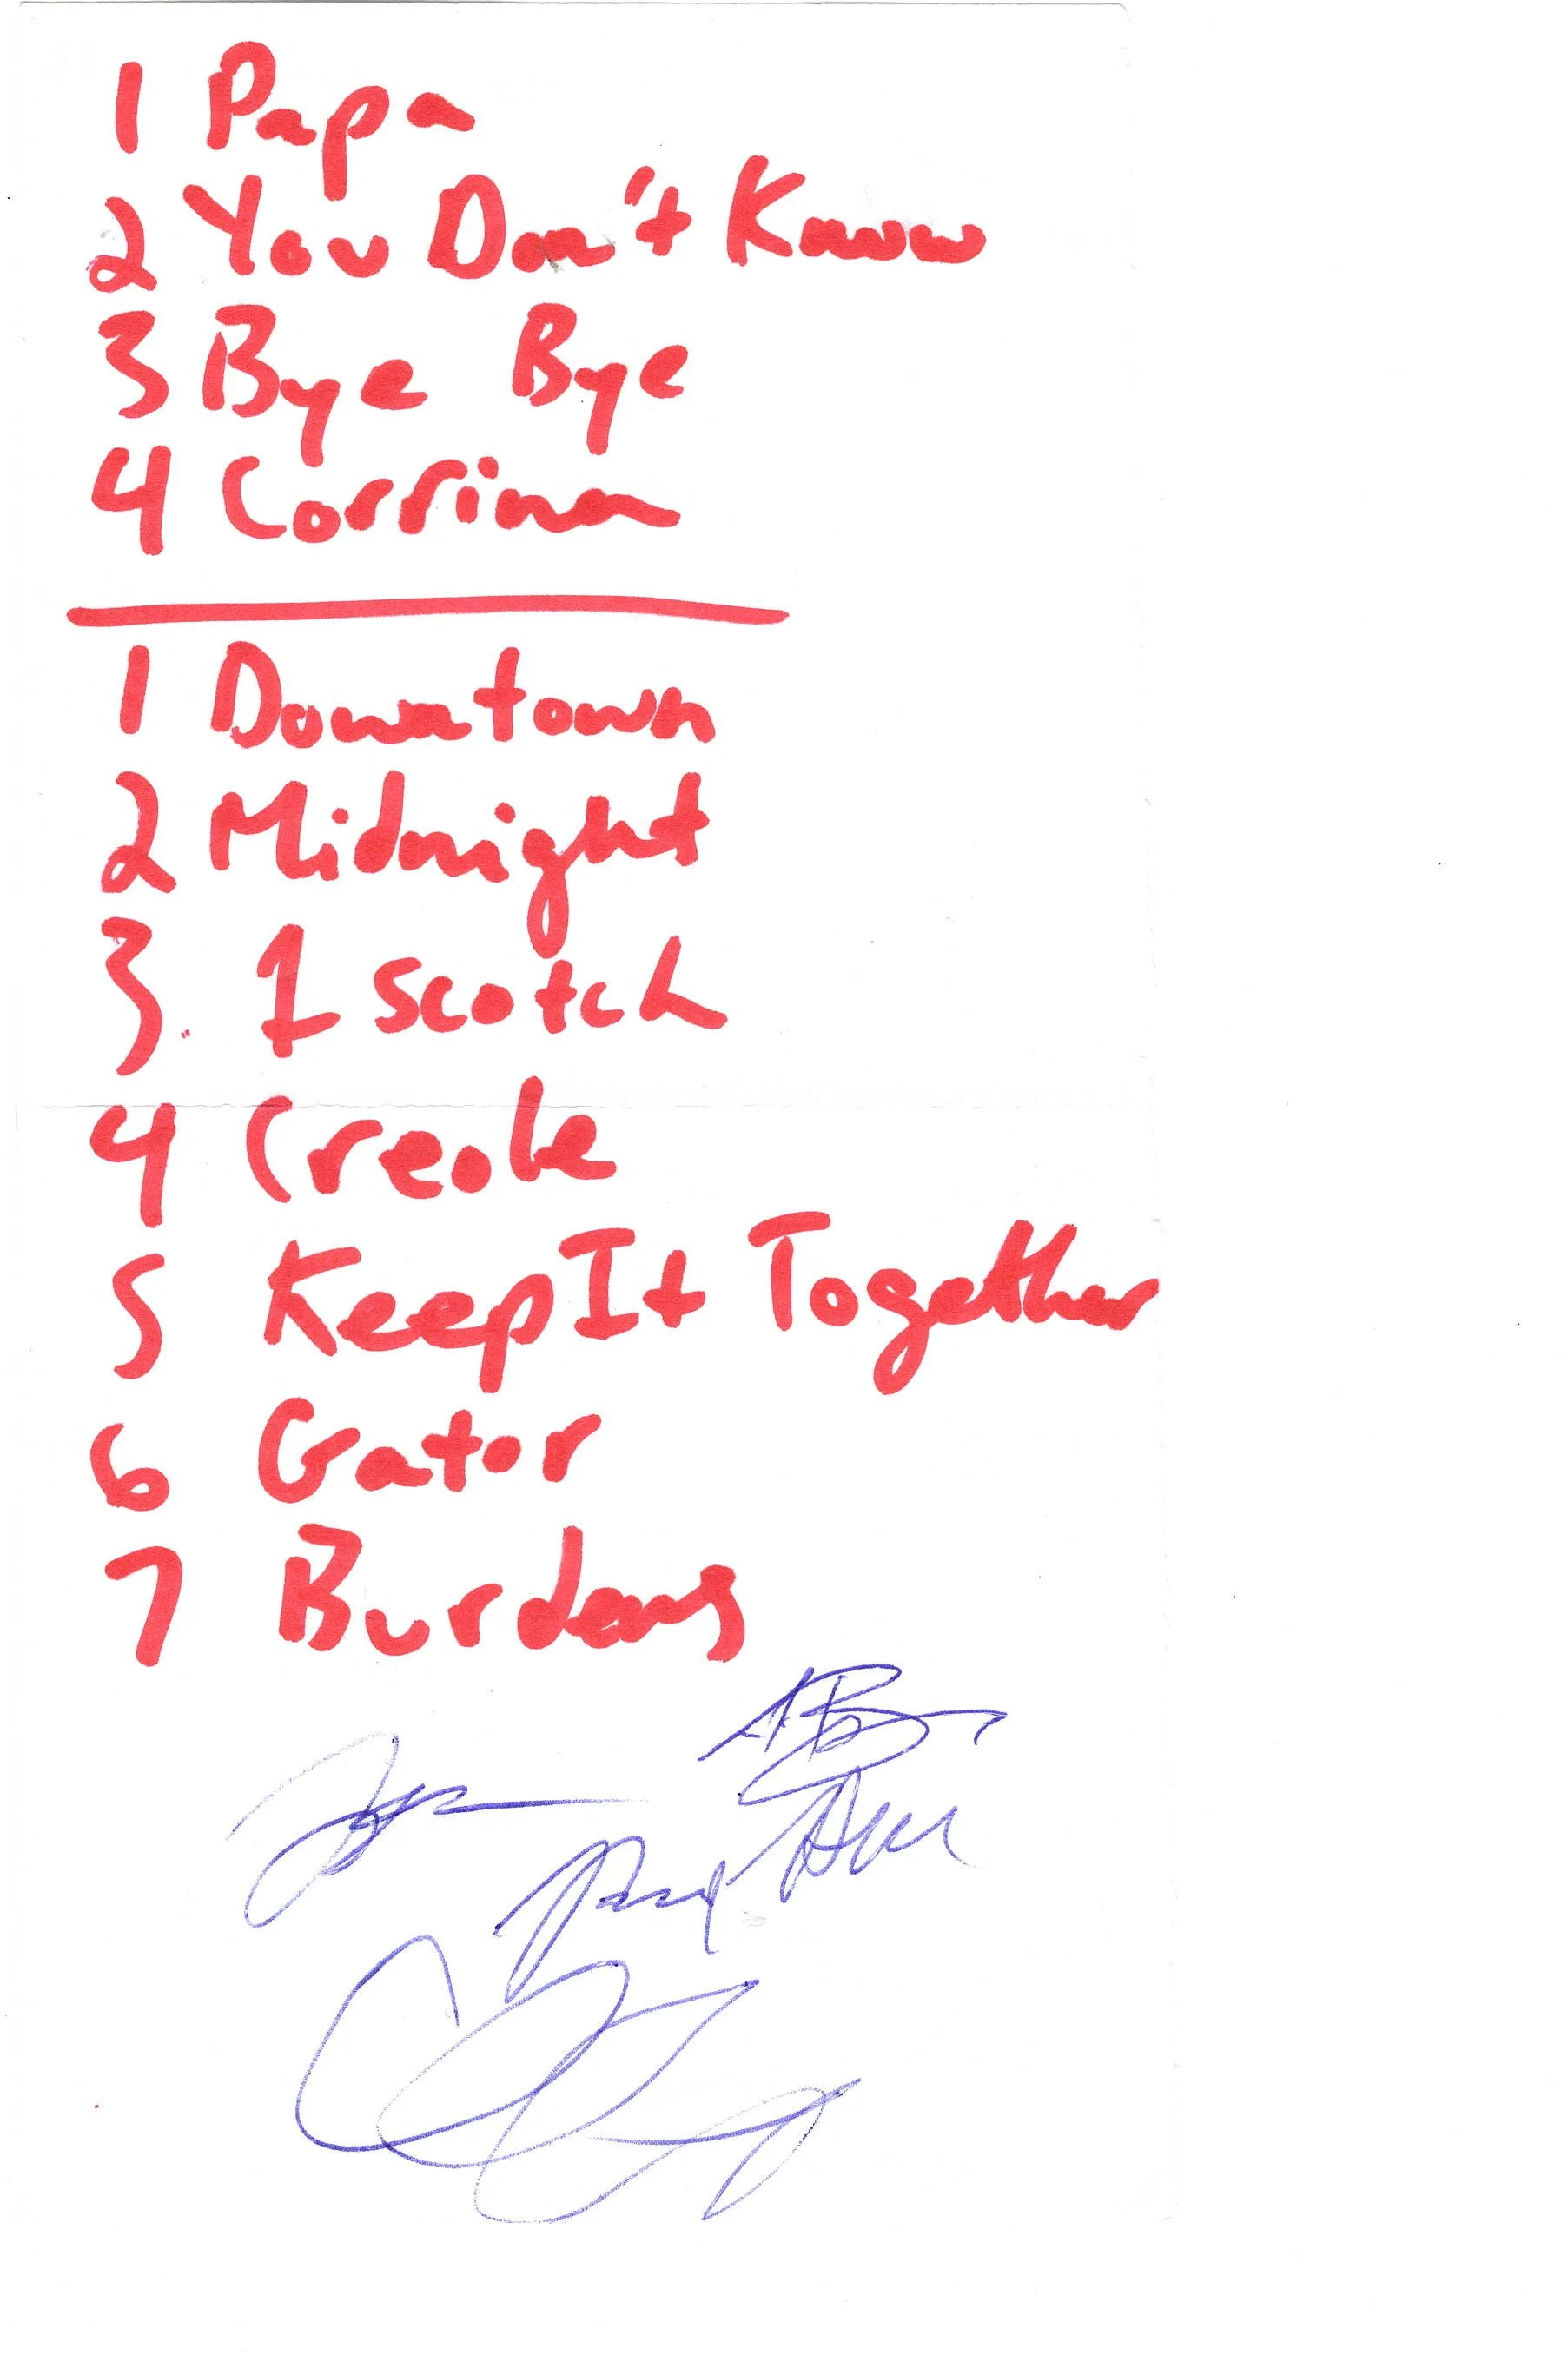 1 Papa
2 You Don't Know
3 Bye Bye
4 Corrina
1 Downtown
2 Midnight
3 1 Scotch
4 Creole
5 Keep It Together
6 Gator
7 Burdens